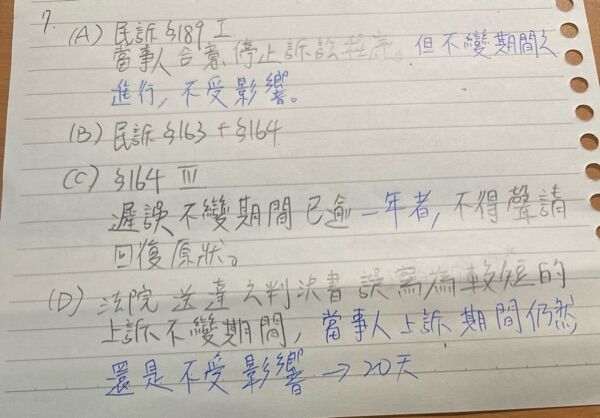 7.
(A) 民訴 §189 I
當事人合意停止訴訟程序。但不變期間之
進行，不受影響。
(B) 民訴 §163 + §164
(C) §164 III
遲誤不變期間已逾一年者，不得聲請
回復原狀。
(D) 法院送達之判決書誤寫為較短的
上訴不變期間，當事人上訴期間仍然
還是不受影響 → 20天